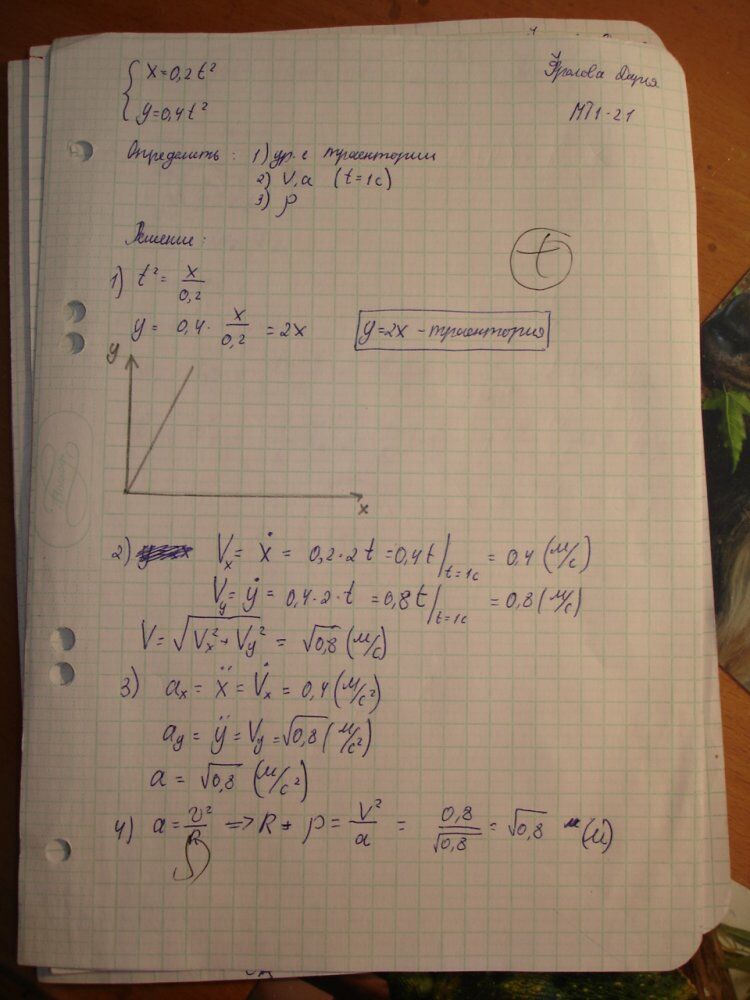 x=0,2t²
y=0,4t²
Фролова Дарья
МТ1-21
Определить: 1) ур-е траектории
2) V, a (t=1с)
3) ρ
Решение:
1) t² = x/0,2
y = 0,4 · x/0,2 = 2x
y=2x - траектория
y
x
2) Vx = ẋ = 0,2·2t = 0,4t|t=1с = 0,4 (м/с)
Vy = ẏ = 0,4·2·t = 0,8t|t=1с = 0,8 (м/с)
V = √(Vx²+Vy²) = √0,8 (м/с)
3) ax = ẍ = V̇x = 0,4 (м/с²)
ay = ÿ = Vy = √0,8 (м/с²)
a = √0,8 (м/с²)
4) a = v²/R => R = ρ = V²/a = 0,8/√0,8 = √0,8 (м)